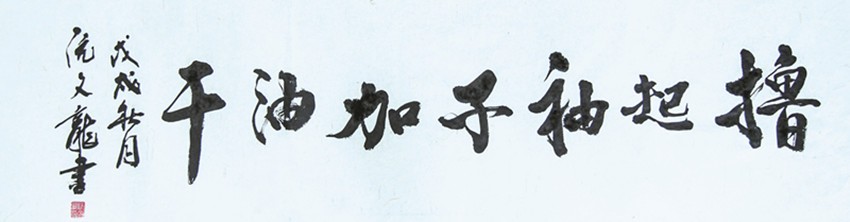 撸起袖子加油干
戊戌秋月
阮文龍書